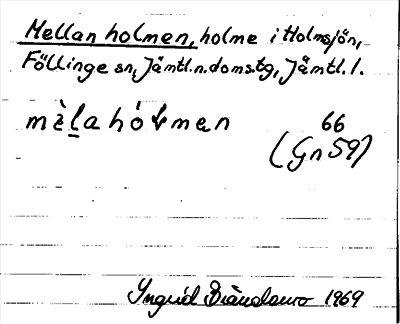 Mellanholmen, holme i Holmsjön,
Föllinge sn, Jämtl.n.doms.tg, Jämtl.l.
mèl̲ahólmen 66
(Gn 59)
Ingrid 1969